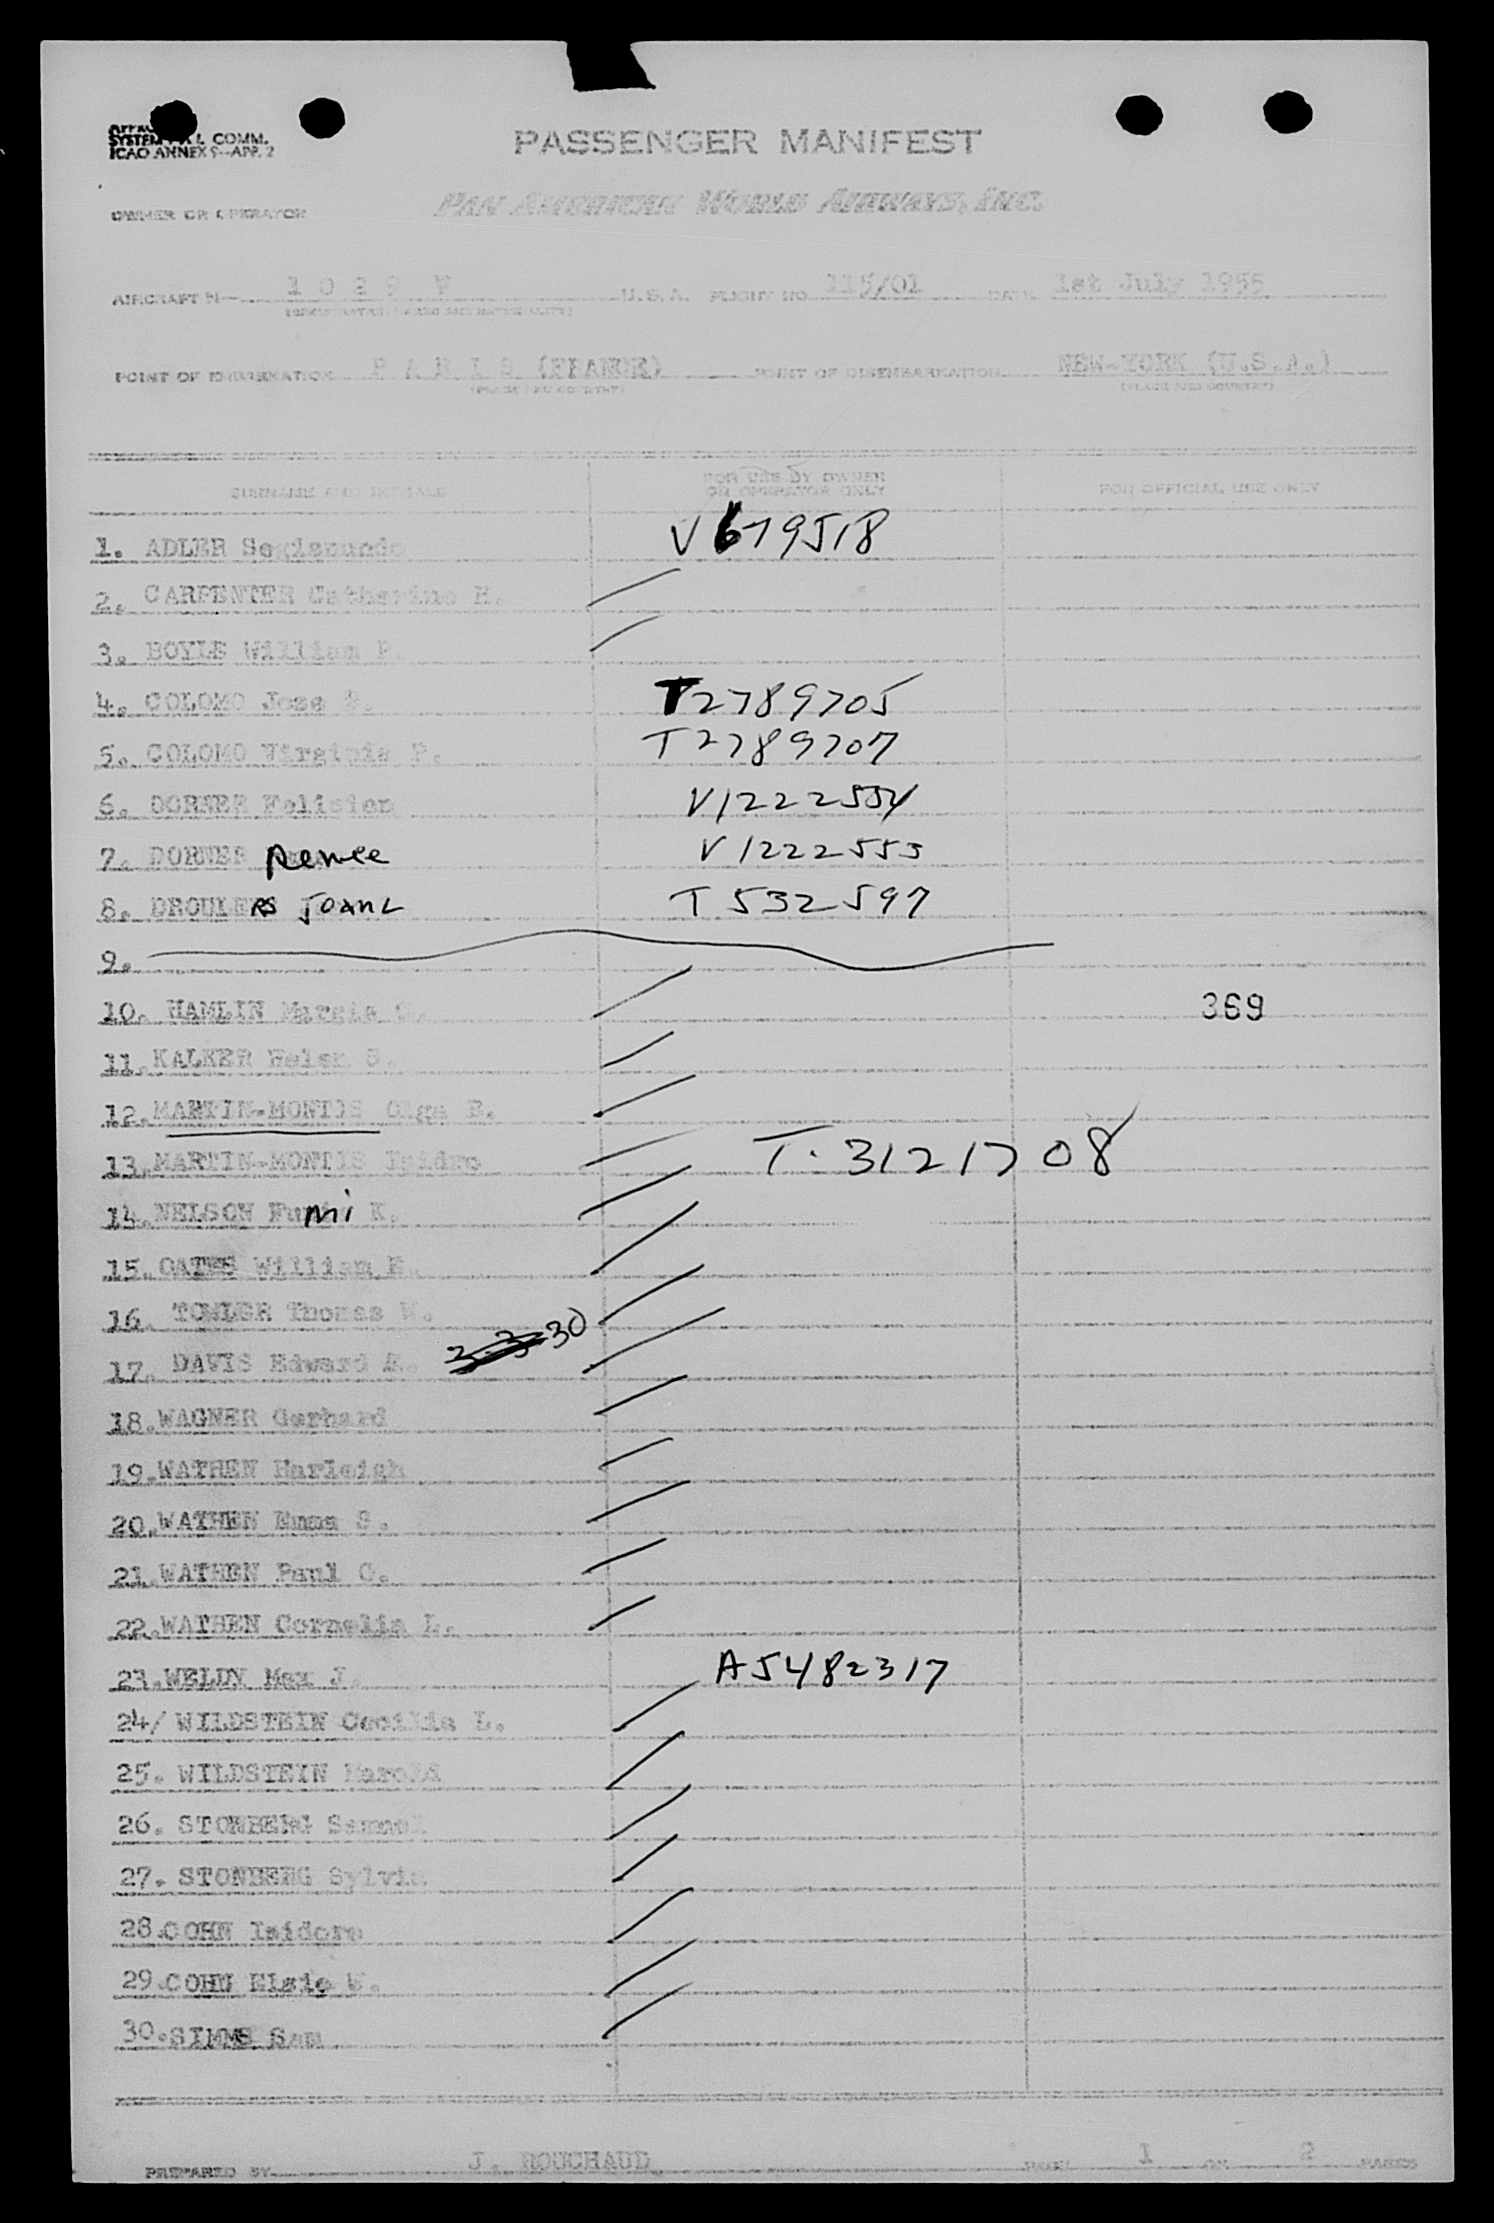 SYSTEM COMM.
ICAO ANNEX 9—APP. 2
PASSENGER MANIFEST
OWNER OR OPERATOR PAN AMERICAN WORLD AIRWAYS, INC.
AIRCRAFT N— 1 0 2 9 V U.S.A. FLIGHT NO. 115/01 DATE 1st July 1955
POINT OF EMBARKATION P A R I S (FRANCE) POINT OF DISEMBARKATION NEW-YORK (U.S.A.)
(PLACE AND COUNTRY) (PLACE AND COUNTRY)
SURNAME AND INITIALS FOR USE BY OWNER OR OPERATOR ONLY FOR OFFICIAL USE ONLY
1. ADLER Segismundo V679518
2. CARPENTER Catherine H.
3. BOYLE William
4. COLOMO Jose T2789705
5. COLOMO Virginia P. T2789707
6. DORNER Felicien V1222554
7. DORNER Renee V1222555
8. DROULERS JOANL T532597
9.
10. HAMLIN 369
11. KALKER Helen S.
12. MARTIN-MONTIS Olga E.
13. MARTIN-MONTIS Isidro T. 3121708
14. NELSON Fumi K.
15. OATES William E.
16. TOWLER Thomas W.
17. DAVIS Edward 3-3-30
18. WAGNER Gerhard
19. WATHEN Harleigh
20. WATHEN Emma S.
21. WATHEN Paul C.
22. WATHEN Cornelia L.
23. WELDY Max J. A5482317
24/ WILDSTEIN Cecilia L.
25. WILDSTEIN Harold
26. STONBERG Samuel
27. STONBERG Sylvia
28. COHN Isidore
29. COHN Elsie W.
30. SIMMS Sam
PREPARED BY J. ROUCHAUD PAGE 1 OF 2 PAGES